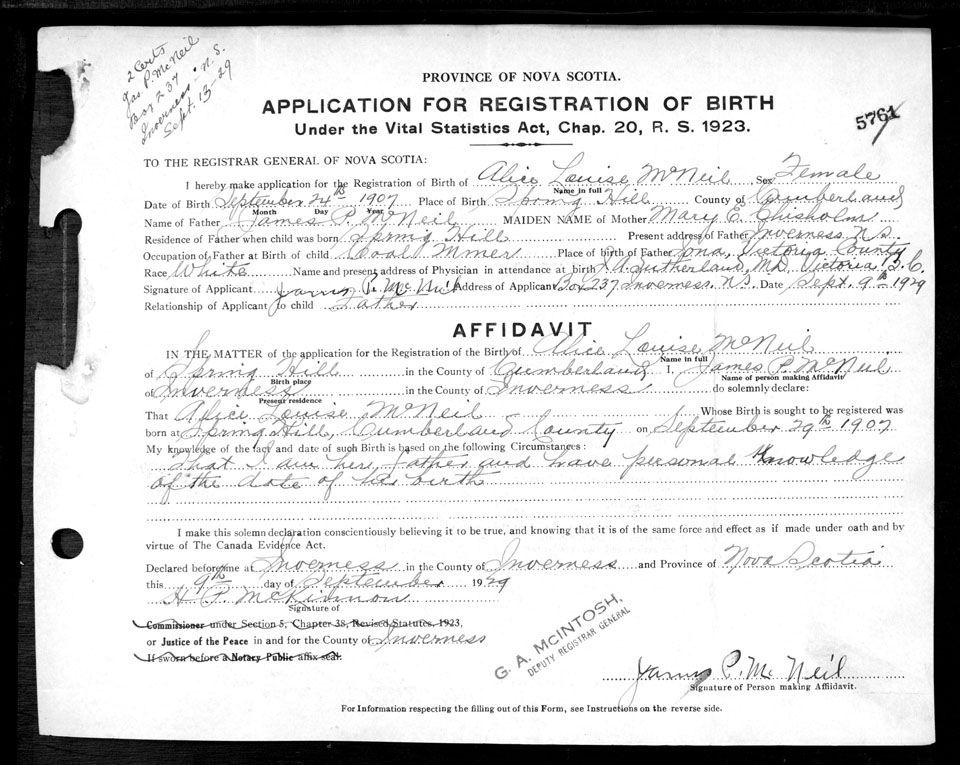 2 Certs
Jas P. McNeil
Box 237
Inverness N.S.
Sept. 13-29
PROVINCE OF NOVA SCOTIA.
APPLICATION FOR REGISTRATION OF BIRTH
Under the Vital Statistics Act, Chap. 20, R. S. 1923.
5761
TO THE REGISTRAR GENERAL OF NOVA SCOTIA:
I hereby make application for the Registration of Birth of Alice Louise McNeil Sex Female
Name in full
Date of Birth September 24th 1907 Place of Birth Spring Hill County of Cumberland
Month Day Year
Name of Father James P. McNeil MAIDEN NAME of Mother Mary C. Chisholm
Residence of Father when child was born Spring Hill Present address of Father Inverness, N.S.
Occupation of Father at Birth of child Coal Miner Place of birth of Father Iona, Victoria County
Race White Name and present address of Physician in attendance at birth Sutherland, MD. Victoria B.C.
Signature of Applicant James P. McNeil Address of Applicant Box 237 Inverness. N.S. Date Sept. 9th 1929
Relationship of Applicant to child Father
AFFIDAVIT
IN THE MATTER of the application for the Registration of the Birth of Alice Louise McNeil
Name in full
of Spring Hill in the County of Cumberland I, James P. McNeil
Birth place Name of person making Affidavit
of Inverness in the County of Inverness do solemnly declare:
Present residence
That Alice Louise McNeil Whose Birth is sought to be registered was
born at Spring Hill, Cumberland County on September 29th 1907
My knowledge of the fact and date of such Birth is based on the following Circumstances:
That I am her father and have personal knowledge
of the date of her birth
I make this solemn declaration conscientiously believing it to be true, and knowing that it is of the same force and effect as if made under oath and by
virtue of The Canada Evidence Act.
Declared before me at Inverness in the County of Inverness and Province of Nova Scotia
this 9th day of September 1929
H. P. McKinnon
Signature of
Commissioner under Section 5, Chapter 38, Revised Statutes, 1923,
or Justice of the Peace in and for the County of Inverness
If sworn before a Notary Public affix seal.
G. A. MCINTOSH,
DEPUTY REGISTRAR GENERAL
James P. McNeil
Signature of Person making Affidavit.
For Information respecting the filling out of this Form, see Instructions on the reverse side.